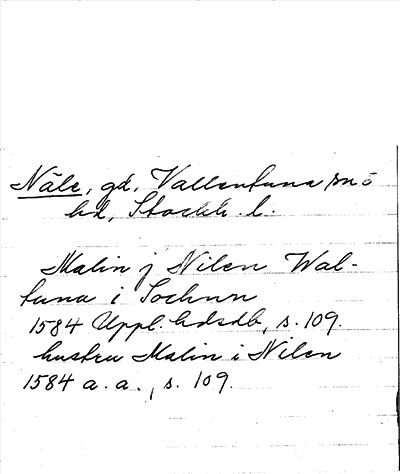 Näle, gd, Vallentuna sn o
hd, Stockh. l.
Malin j Nilen Wal-
tuna i Sochnn
1584 Uppl. hdsdb, s. 109.
hustru Malin i Nilen
1584 a. a., s. 109.